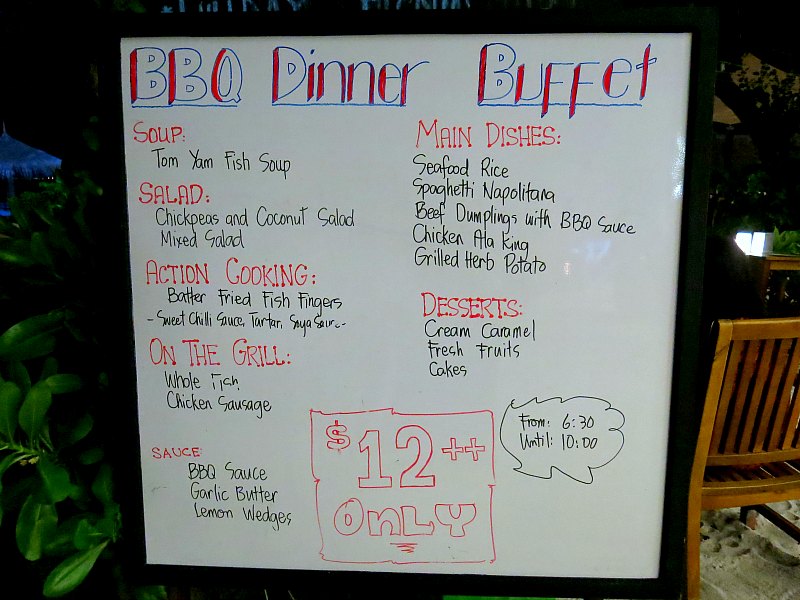 BBQ Dinner Buffet
SOUP:
Tom Yam Fish Soup
SALAD:
Chickpeas and Coconut Salad
Mixed Salad
ACTION COOKING:
Batter Fried Fish Fingers
- Sweet Chilli Sauce, Tartar, Soya Sauce -
ON THE GRILL:
Whole Fish
Chicken Sausage
SAUCE:
BBQ Sauce
Garlic Butter
Lemon Wedges
MAIN DISHES:
Seafood Rice
Spaghetti Napolitana
Beef Dumplings with BBQ Sauce
Chicken Ala King
Grilled Herb Potato
DESSERTS:
Cream Caramel
Fresh Fruits
Cakes
$12++
ONLY
From: 6:30
Until: 10:00